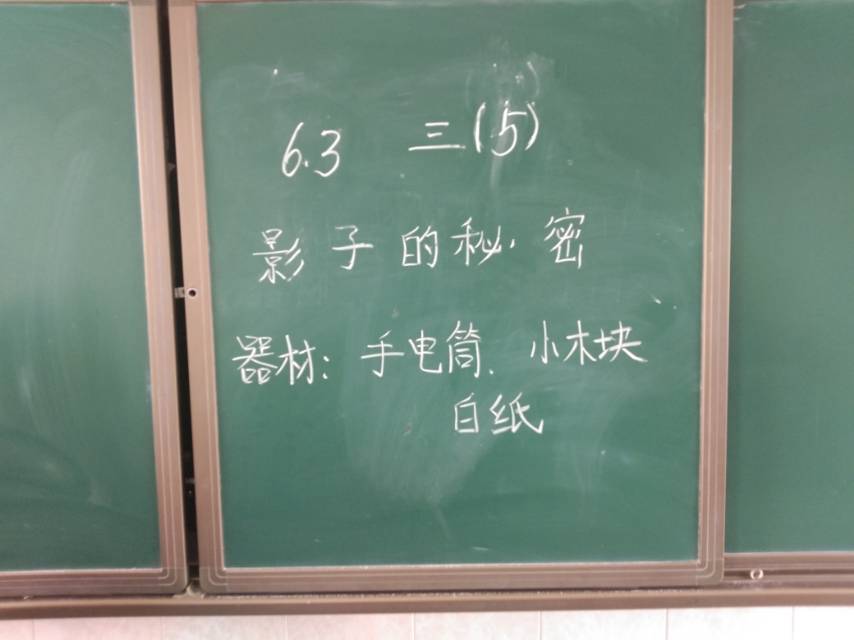 6.3 三(5)
影子的秘密
器材：手电筒、小木块
白纸